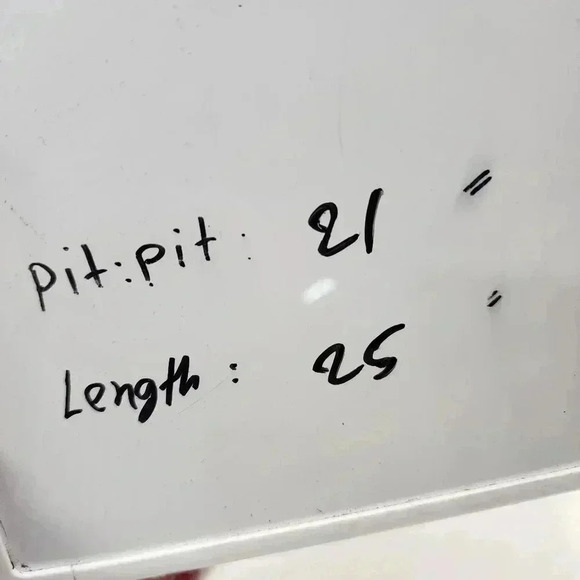 pit:pit: 21 "
Length: 25 "